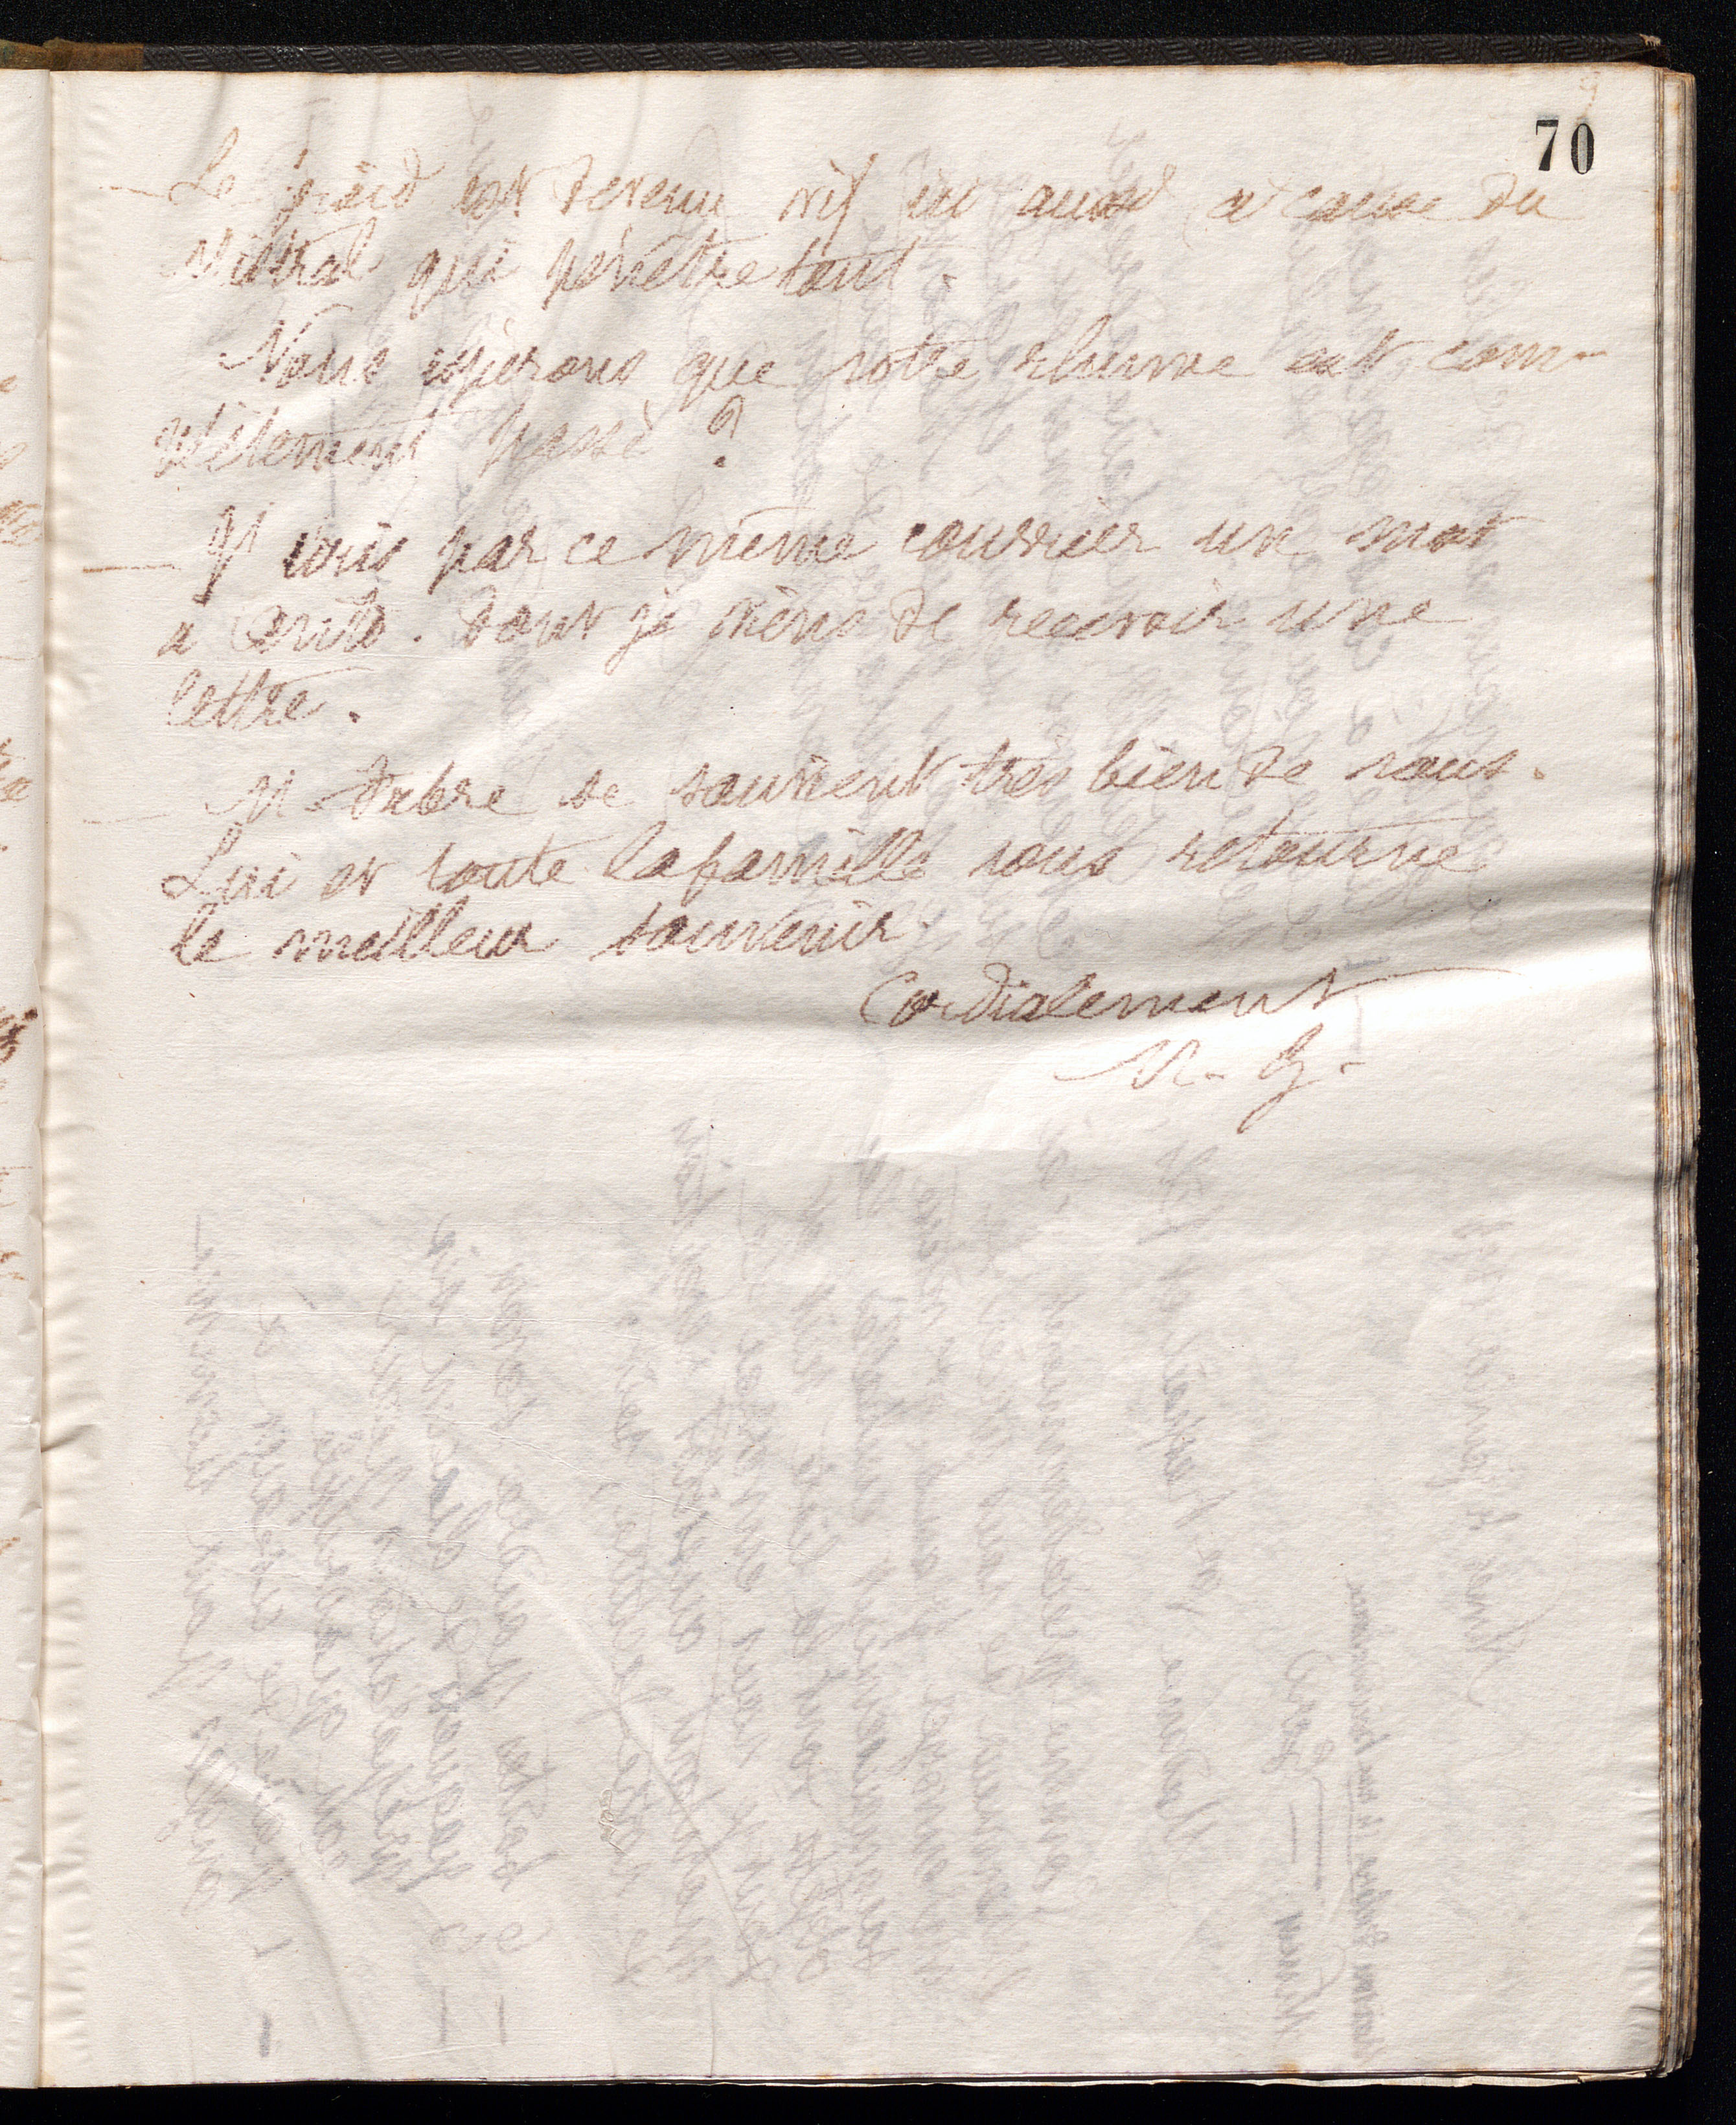 70
— Le froid est devenu vif ici aussi à cause du
Mistral qui pénètre tout.
Nous espérons que votre rhume est com-
plètement passé ?
— J' écris par ce même courrier un mot
à dont je viens de recevoir une
lettre.
— M. Fabre se souvient très bien de vous.
Lui et toute la famille vous retourne
le meilleur souvenir.
Cordialement
N. G.